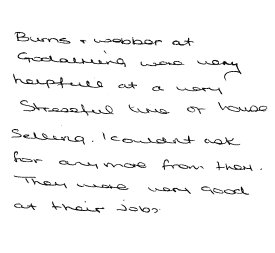 Burns + webber at
Godalming were very
helpfull at a very
Stressful time of house
Selling. I couldn't ask
for anymore from them.
They were very good
at their jobs.